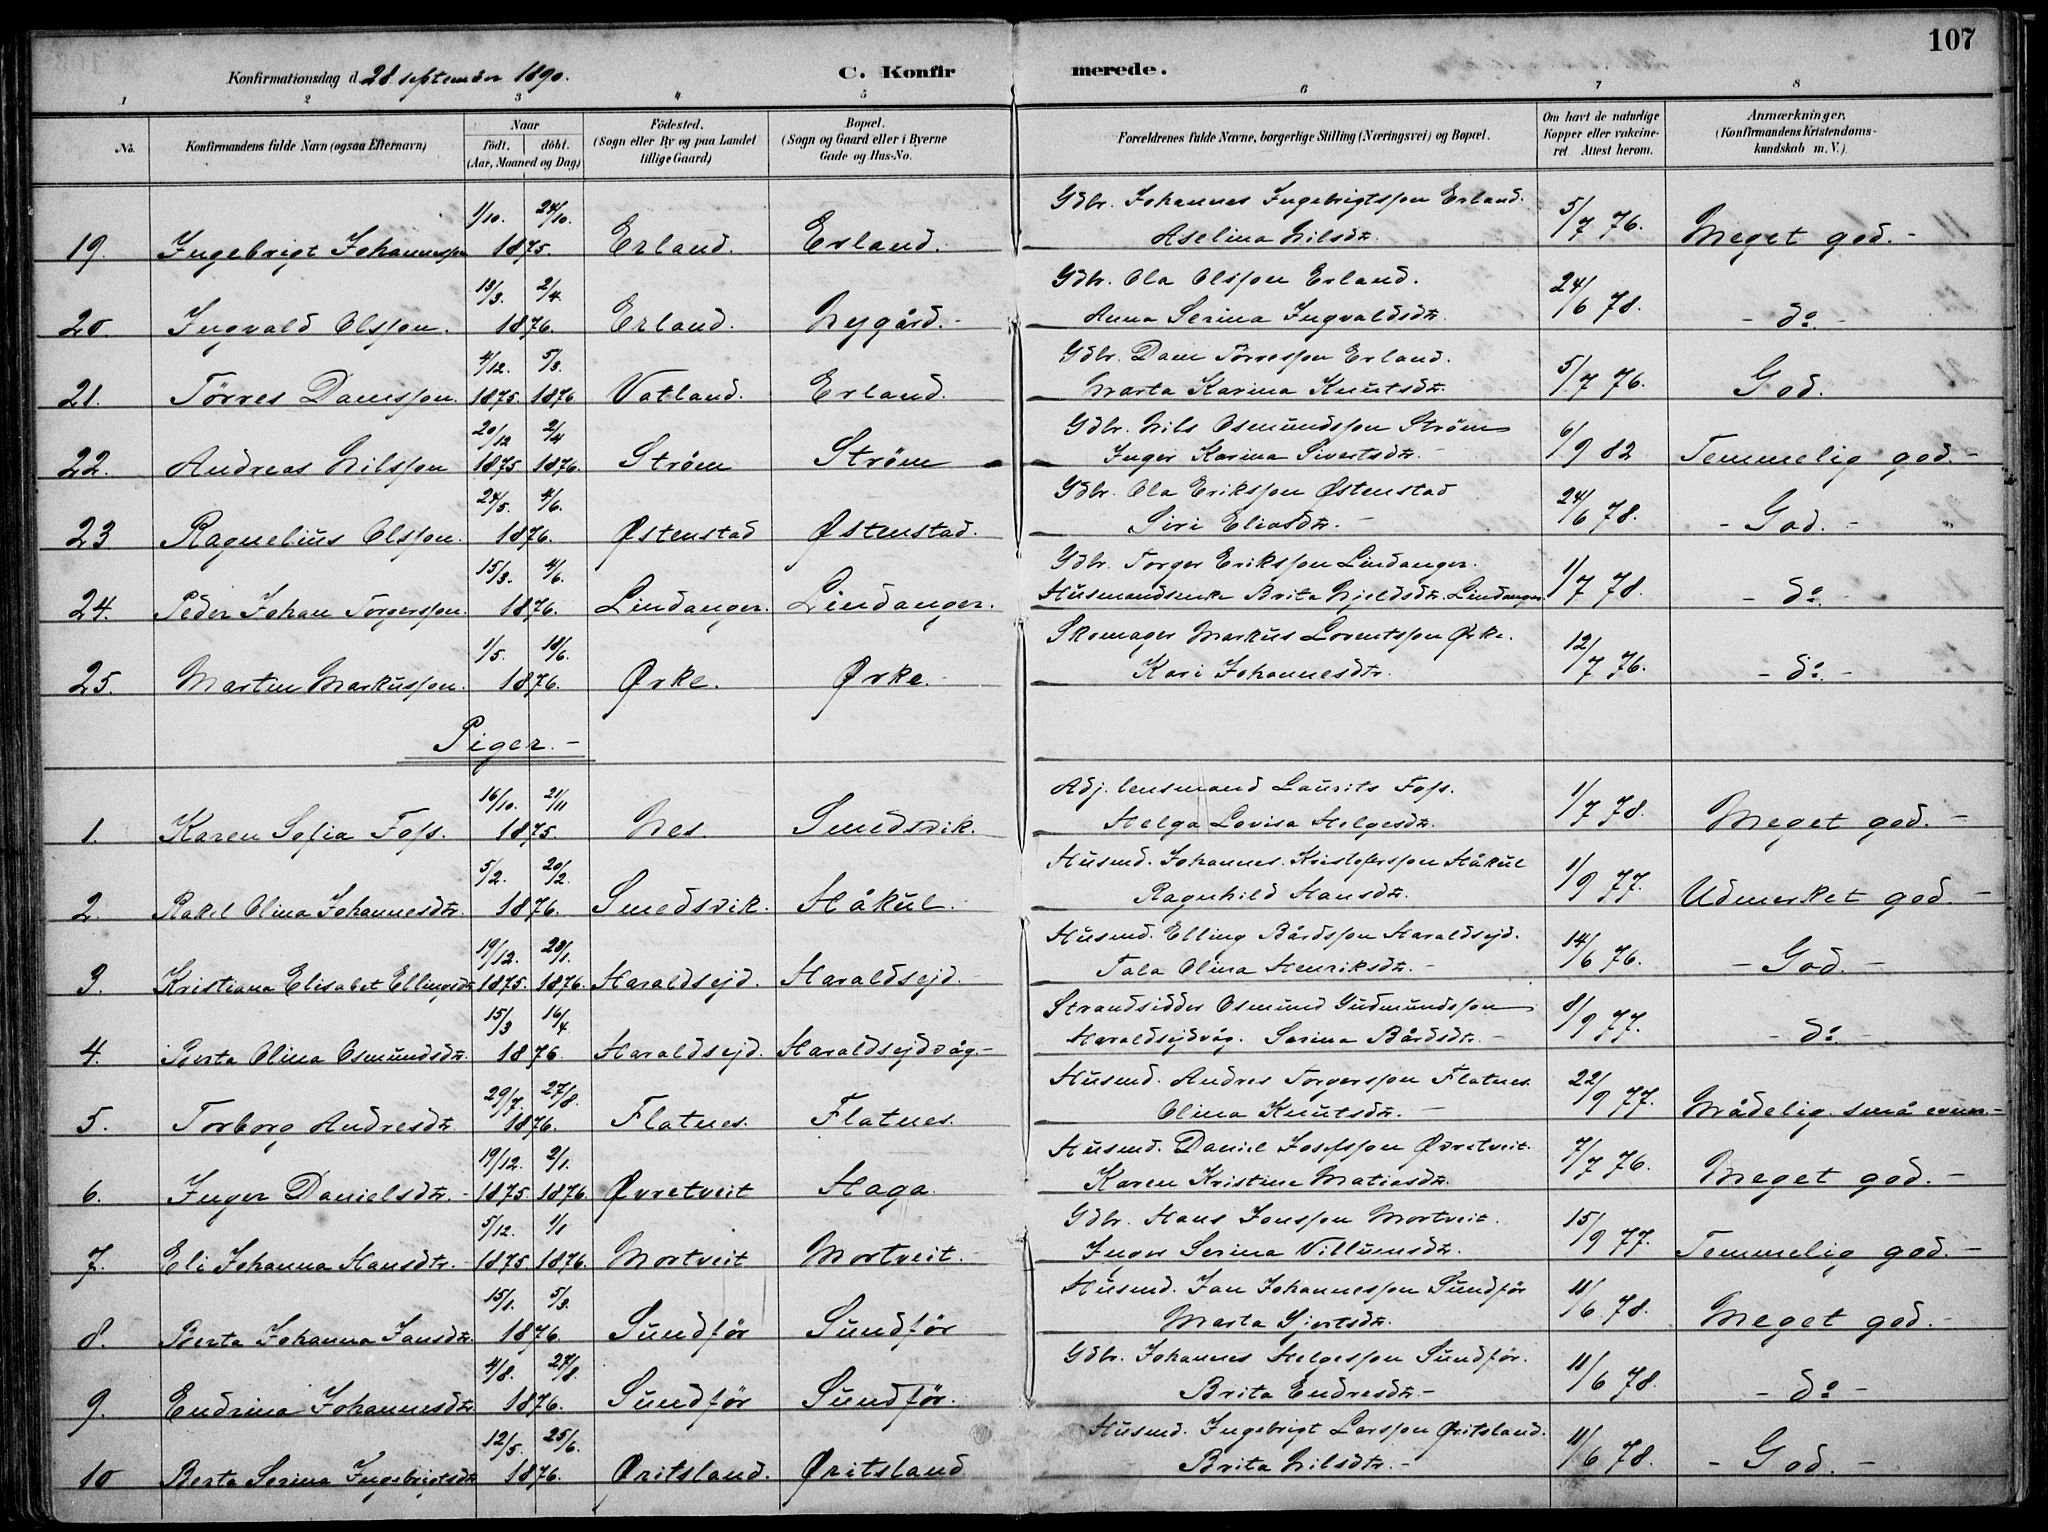 107
Konfirmationsdag d. 28. september 1890. C. Konfir merede.
1 2 3 4 5 6 7 8
No. Konfirmandens fulde Navn (ogsaa Efternavn) Naar födt. döbt. (Aar, Maaned og Dag) Födested. (Sogn eller By og paa Landet tillige Gaard) Bopæl. (Sogn og Gaard eller i Byerne Gade og Hus-No. Forældrenes fulde Navne, borgerlige Stilling (Næringsvei) og Bopæl. Om havt de naturlige Kopper eller vakcineret Attest herom. Anmærkninger, (Konfirmandens Kristendomskundskab m. V.)
1/10. 24/10. Gdbr. Johannes Ingebrigtsson Erland.
19. Ingebrigt Johannesson 1875. Erland. Erland. Aselina Nilsdtr. 5/7 76. Meget god. -
13/3. 2/4. Gdbr. Ola Olsson Erland.
20. Ingvald Olsson. 1876. Erland. Nygård. - Anna Serina Ingvaldsdtr. 24/6 78. - do. -
4/12. 5/3. Gdbr. Dam Tørresson Erland.
21. Tørres Damsson. 1875. 1876 Vatland. Erland. Marta Karina Knutsdtr. 5/7 76. God.
20/12 2/4 Gdbr. Nils Osmundsson Strøm
22. Andreas Nilsson 1875 1876. Strøm Strøm Inger Karina Sivertsdtr. - 6/9 82 Temmelig god. -
24/5. 4/6. Gdbr. Ola Eriksson Østenstad
23. Ragnelius Olsson. 1876. Østenstad Østenstad. Siri Eliasdtr. - 24/6 78. - God. -
15/3. 4/6. Gdbr. Torger Eriksson Lindanger.
24. Peder Johan Torgersson. 1876. Lindanger. Lindanger. Husmandsenke Brita Njeldsdtr. Lindanger. 1/7 78. - do. -
1/5. 18/6. Skomager Markus Lorentsson Ørke.
25. Martin Markusson. 1876. Ørke. Ørke. - Kari Johannesdtr. 12/7 76. - do. -
Piger. -
16/10. 21/11 Adj. lensmand Laurits Foss.
1. Karen Sofia Foss. 1875 Nes. Smedsvik. Helga Lovisa Helgesdtr. 1/7 78. Meget god. -
5/2. 20/2. Husmd. Johannes Kristofersson Håkul
2. Rakel Olina Johannesdtr. 1876. Smedsvik. Håkul. Ragnhild Hansdtr. 1/9 77. Udmerket god. -
19/12. 23/1. Husmd. Elling Bårdsson Haraldsejd.
3. Kristiana Elisabet Ellingsdtr 1875. 1876. Haraldsejd. Haraldsejd. - Tala Olina Henriksdtr. - 14/6 76. - God. -
15/3 16/4 Strandsidder Osmund Gudmundsson
4. Berta Olina Osmundsdtr. 1876 Haraldsejd. Haraldsejdvåg - Haraldsejdvåg. Serina Bårdsdtr. - 8/9 77. - do
29/7. 27/8. Husmd. Andres Torgersson Flatnes.
5. Torborg Andresdtr. 1876. Flatnes. Flatnes. Olina Knutsdtr. - 22/9 77. Mådelig. små evner. -
19/12. 2/1. Husmd. Daniel Josefsson Øvretveit.
6. Inger Danielsdtr. - 1875 1876 Øvretveit Haga. Karen Kristine Matiasdtr. 7/7 76. Meget god. -
5/12. 1/1 Gdbr. Hans Jonsson Mortveit.
7. Eli Johanna Hansdtr. - 1875 1876. Mortveit Mortveit. - Inger Serina Villumsdtr. 15/9 77. Temmelig god. -
15/1. 5/3. Husmd. Jan Johannesson Sundför
8. Berta Johanna Jansdtr. 1876. Sundför Sundför Marta Sjurtsdtr. 11/6 78. Meget god. -
4/8. 27/8. Gdbr. Johannes Helgesson Sundför.
9. Endrina Johannesdtr 1876. Sundför Sundför. Brita Endresdtr - 11/6 78. - do -
12/5. 25/6. Husmd. Ingebrigt Larsson Øritsland.
10 Berta Serina Ingebrigtsdtr 1876. Øritsland. Øritsland Brita Nilsdtr. - 11/6 78. - God. -